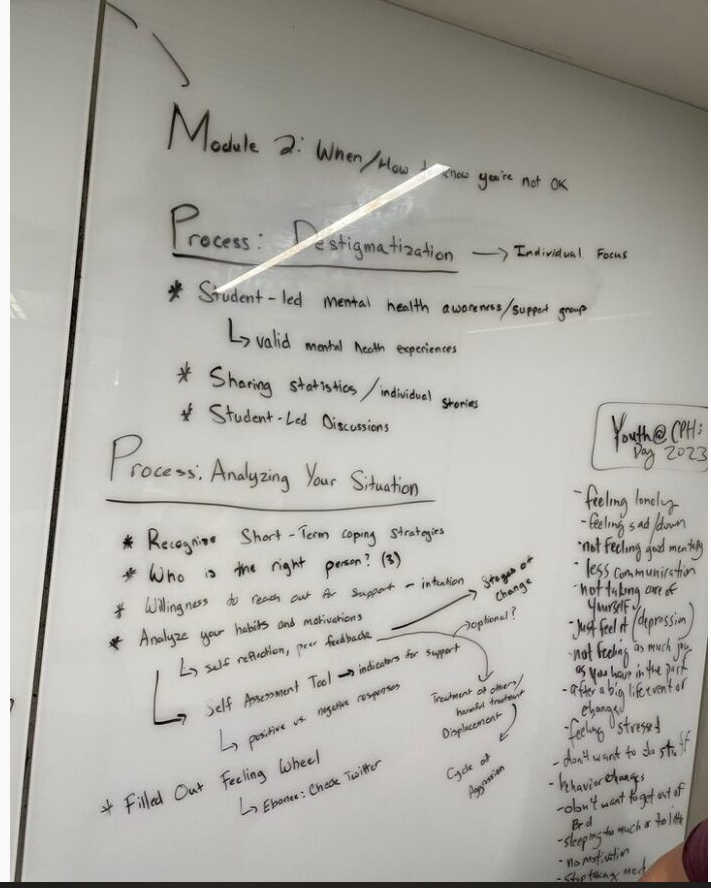 Module 2: When/How to know you're not OK
Process: Destigmatization → Individual Focus
* Student-led mental health awareness/support group
↳ valid mental heath experiences
* Sharing statistics/individual stories
* Student-Led Discussions
Process: Analyzing Your Situation
* Recognize Short-Term coping strategies
* Who is the right person? (3)
* Willingness to reach out for support - intention
* Analyze your habits and motivations
Stages of
change
↳ self reflection, peer feedback
optional?
↳ Self Assessment Tool → indicators for support
↳ positive vs. negative responses
Treatment of others/
harmful treatment
Displacement
Cycle of
Aggression
* Filled Out Feeling Wheel
↳ Ebonee: Check Twitter
Youth@CPHI
Day 2023
- feeling lonely
- feeling sad/down
- not feeling good mentally
- less communication
- not taking care of
yourself
- Just feel it (depression)
- not feeling as much joy
as you have in the past
- after a big life event or
change
- feeling stressed
- don't want to do stuff
- behavior changes
- don't want to get out of
Bed
- sleeping to much or to little
- no motivation
- stop taking